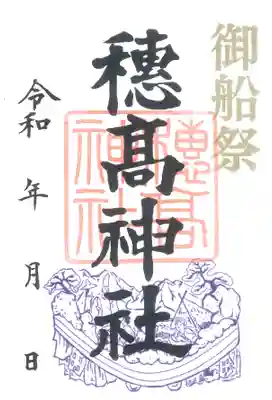 御船祭
穂高神社
穗髙神社
令和 年 月 日